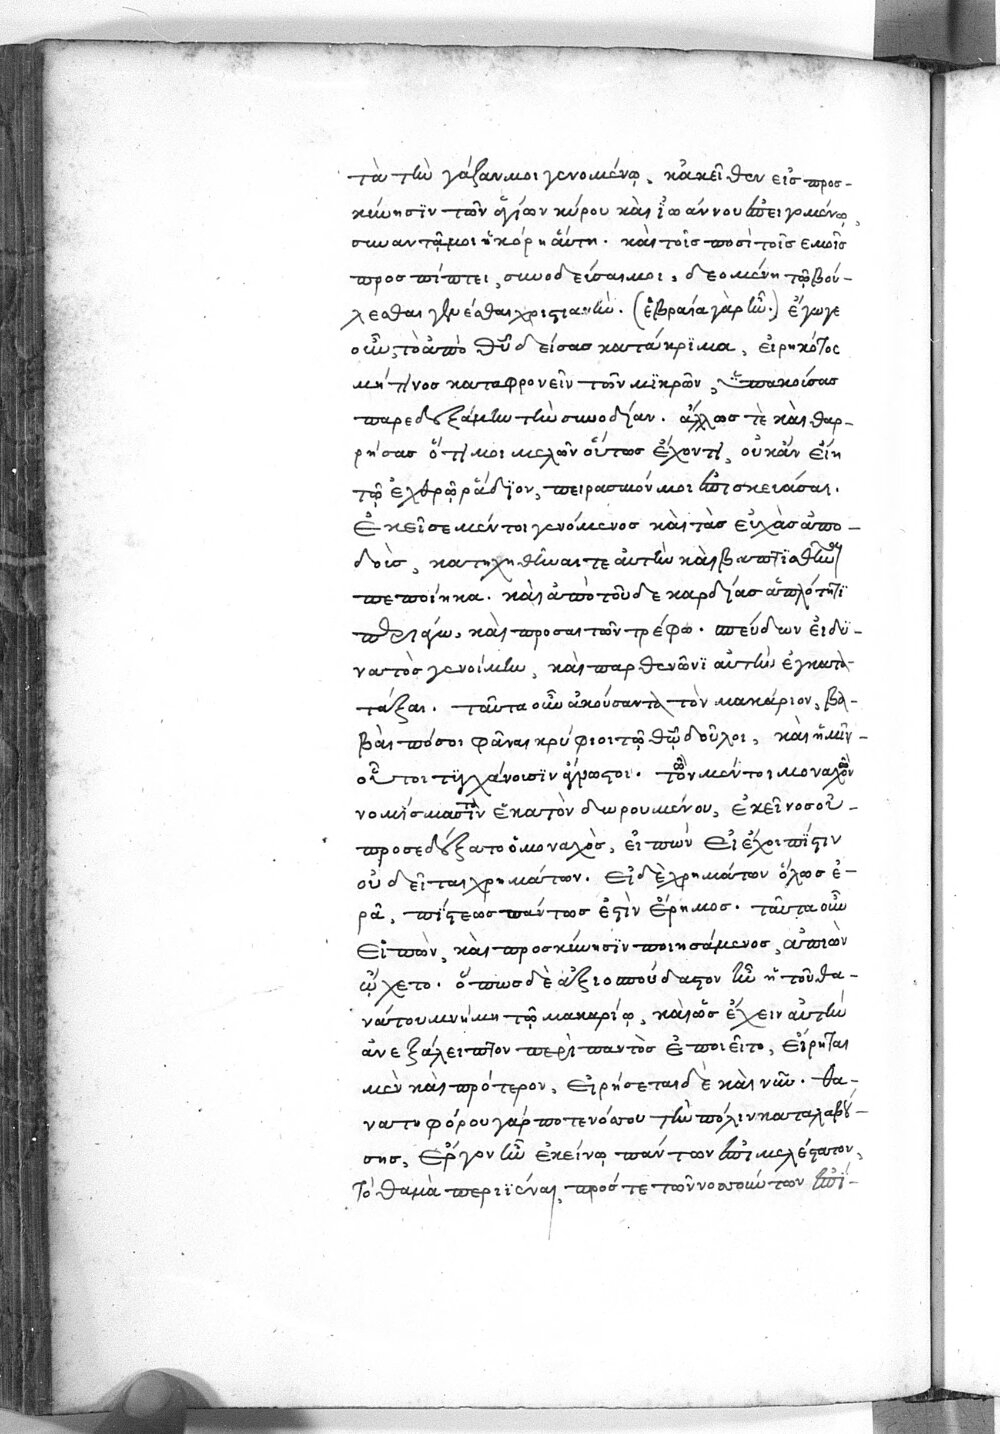 τὰ τὴν γάζαν μοι γενομένῳ, κἀκεῖθεν εἰς προσ-
κύνησϊν τῶν ἁγίων κύρου καὶ ϊωάννου ἐπειγομένῳ,
συναντᾷ μοι ἡ κόρη αὕτη. καὶ τοῖς ποσὶ τοῖς ἐμοῖς
προσπίπτει, συνοδεύσαι μοι, δεομένη τῷ βού-
λεσθαι γενέσθαι χριστιανὴν. (ἑβραία γὰρ ἦν.) ἔγωγε
οὖν, τὸ ἀπὸ θῦ δείσας κατάκρϊμα, εἰρηκότος
μή τινος καταφρονεῖν τῶν μϊκρῶν, ὑπακούσας
παρεδεξάμην τὴν συνοδίαν. ἄλλως τὲ καὶ θαρ-
ρήσας ὅτι μοι μελῶν οὕτως ἔχοντι, οὐκ ἂν εἴη
τῷ ἐχθρῷ ῥάδϊον, πειρασμόν μοι ἐπισκευάσαι.
ἐκεῖσε μέντοι γενόμενος καὶ τὰς εὐχὰς ἀπο-
δοὺς, κατηχηθῆναι τε αὐτὴν καὶ βαπτϊσθῆναι
πεποίηκα. καὶ ἀπὸ τοῦδε καρδίας ἁπλότητϊ
περιάγω, καὶ προσαιτῶν τρέφω. σπεύδων εἰ δυ-
νατὸς γενοίμην, καὶ παρθενῶνϊ αὐτὴν ἐγκατα-
τάξαι. ταῦτα οὖν ἀκούσαντα τὸν μακάριον, βα-
βαὶ πόσοι φᾶναι κρύφιοι τῷ θῷ δοῦλοι, καὶ ἡμῖν
οὗτοι τυγχάνουσϊν ἄγνωστοι. τῶν μέντοι μοναχῶν
νομίσμασϊν ἑκατὸν δωρουμένου, ἐκεῖνος οὐ
προσεδέξατο ὁ μοναχὸς, εἰπὼν εἰ ἔχοι πίστιν
οὐ δεῖται χρημάτων. εἰ δὲ χρημάτων ὅλως ἐ-
ρᾶ, πίστεως πάντως ἐστὶν ἔρημος. ταῦτα οὖν
εἰπὼν, καὶ προσκύνησϊν ποιησάμενος, ἀπιὼν
ᾤχετο. ὅπως δὲ ἀξιοσπούδαστον ἦν ἡ τοῦ θα-
νάτου μνήμη τῷ μακαρίῳ, καὶ ὡς ἔχειν αὐτὴν
ἀνεξάλειπτον περὶ παντὸς ἐποιεῖτο, εἴρηται
μὲν καὶ πρότερον, εἰρήσεται δὲ καὶ νῦν. θα-
νατηφόρου γάρ ποτε νόσου τὴν πόλιν καταλαβού-
σης, ἔργον ἦν ἐκείνῳ πάντων ἐπιμελέστατον,
τὸ θαμὰ περιϊέναι, πρός τε τῶν νοσούντων ἐπί-